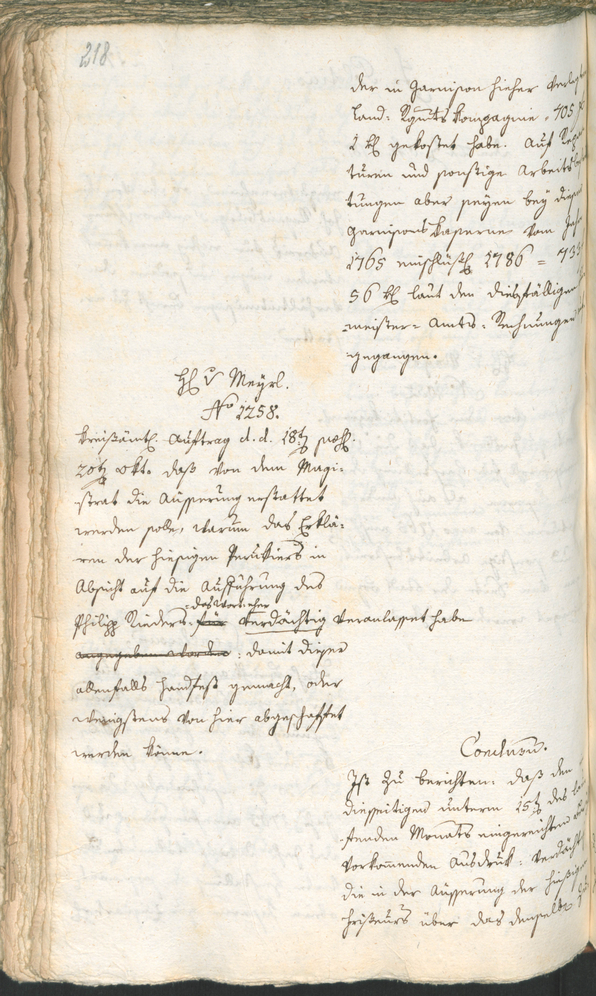 218.
der in Garnison hieher verlegt
Land: Kompagnie 705 f
2 kr gekostet habe. Auf
turen und sonstige Arbeits
tungen aber seyen bey dieser
Garnisons Kaserne vom Jahr
1765 einschlüßl. 1786 = 733
56 kr laut den diesfälligen
meister= Amts= Rechnungen
gegangen.
H. v Meyrl.
No 1258.
Kreisämtl. Auftrag d. d. 18t
20t Okt. daß von dem Magi=
strat die Äusserung erstattet
werden solle, warum das Erklä=
ren der hiesigen Perukiers in
Absicht auf die Aufführung des
das Wort eher
Philipp Rieders für verdächtig veranlasset habe
angegeben worden: damit dieser
allenfalls handfest gemacht, oder
wenigstens von hier abgeschaffet
werden könne.
Conclusum.
Ist zu berichten: daß den
diesseitigen unterm 15t des
fenden Monats eingereichten
vorkommenden Ausdruk: verdächt
die in der Äusserung der hiesigen
friseurs über das denselben